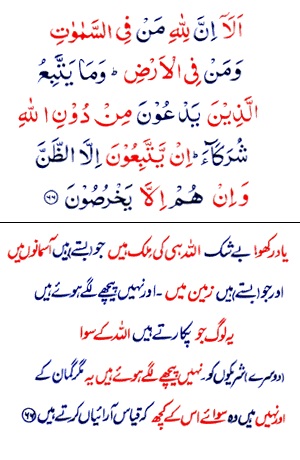 اَلَاۤ اِنَّ لِلّٰهِ مَنْ فِی السَّمٰوٰتِ
وَمَنْ فِی الْاَرْضِ ؕ وَمَا یَتَّبِعُ
الَّذِیْنَ یَدْعُوْنَ مِنْ دُوْنِ اللّٰهِ
شُرَكَآءَ ؕ اِنْ یَّتَّبِعُوْنَ اِلَّا الظَّنَّ
وَاِنْ هُمْ اِلَّا یَخْرُصُوْنَ ﴿۶۶﴾
یاد رکھو! بے شک اللہ ہی کی مِلک ہیں جو بستے ہیں آسمانوں میں
اور جو بستے ہیں زمین میں ۔ اور نہیں پیچھے لگے ہوئے ہیں
یہ لوگ جو پکارتے ہیں اللہ کے سوا
(دوسرے) شریکوں کو۔ نہیں پیچھے لگے ہوئے ہیں یہ مگر گمان کے
اور نہیں ہیں وہ سوائے اس کے کچھ کہ قیاس آرائیاں کرتے ہیں ﴿۶۶﴾